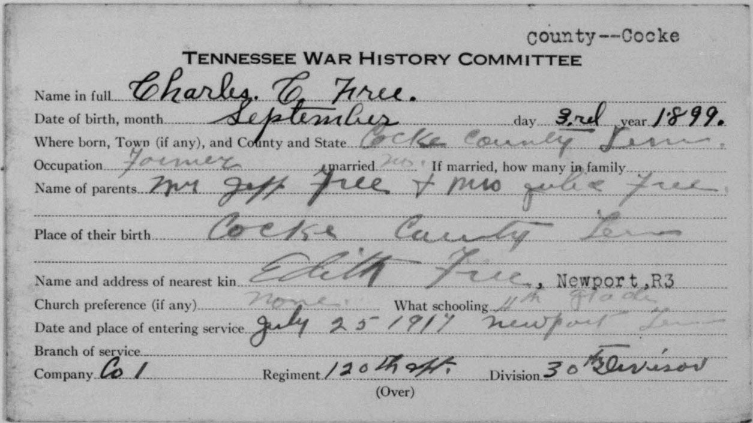 County--Cocke
TENNESSEE WAR HISTORY COMMITTEE
Name in full Charles. C. Free.
Date of birth, month September day 3rd year 1899.
Where born, Town (if any), and County and State Cocke County Tenn.
Occupation Farmer married no. If married, how many in family
Name of parents Mr Jeff Free & Mrs Julia Free.
Place of their birth Cocke County Tenn
Name and address of nearest kin Edith Free, Newport,R3
Church preference (if any) none. What schooling grade
Date and place of entering service July 25 1917 Newport Tenn
Branch of service
Company Co I Regiment 120th Division 30th Divisor
(Over)